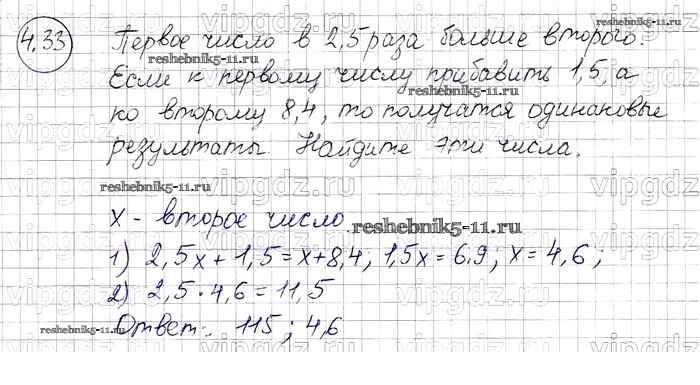 4.33 Первое число в 2,5 раза больше второго.
Если к первому числу прибавить 1,5, а
ко второму 8,4, то получатся одинаковые
результаты. Найдите эти числа.
x - второе число.
1) 2,5x + 1,5 = x + 8,4, 1,5x = 6,9; x = 4,6;
2) 2,5 · 4,6 = 11,5
Ответ: 115; 4,6
reshebnik5-11.ru
reshebnik5-11.ru
reshebnik5-11.ru
reshebnik5-11.ru
reshebnik5-11.ru
reshebnik5-11.ru
vipgdz.ru